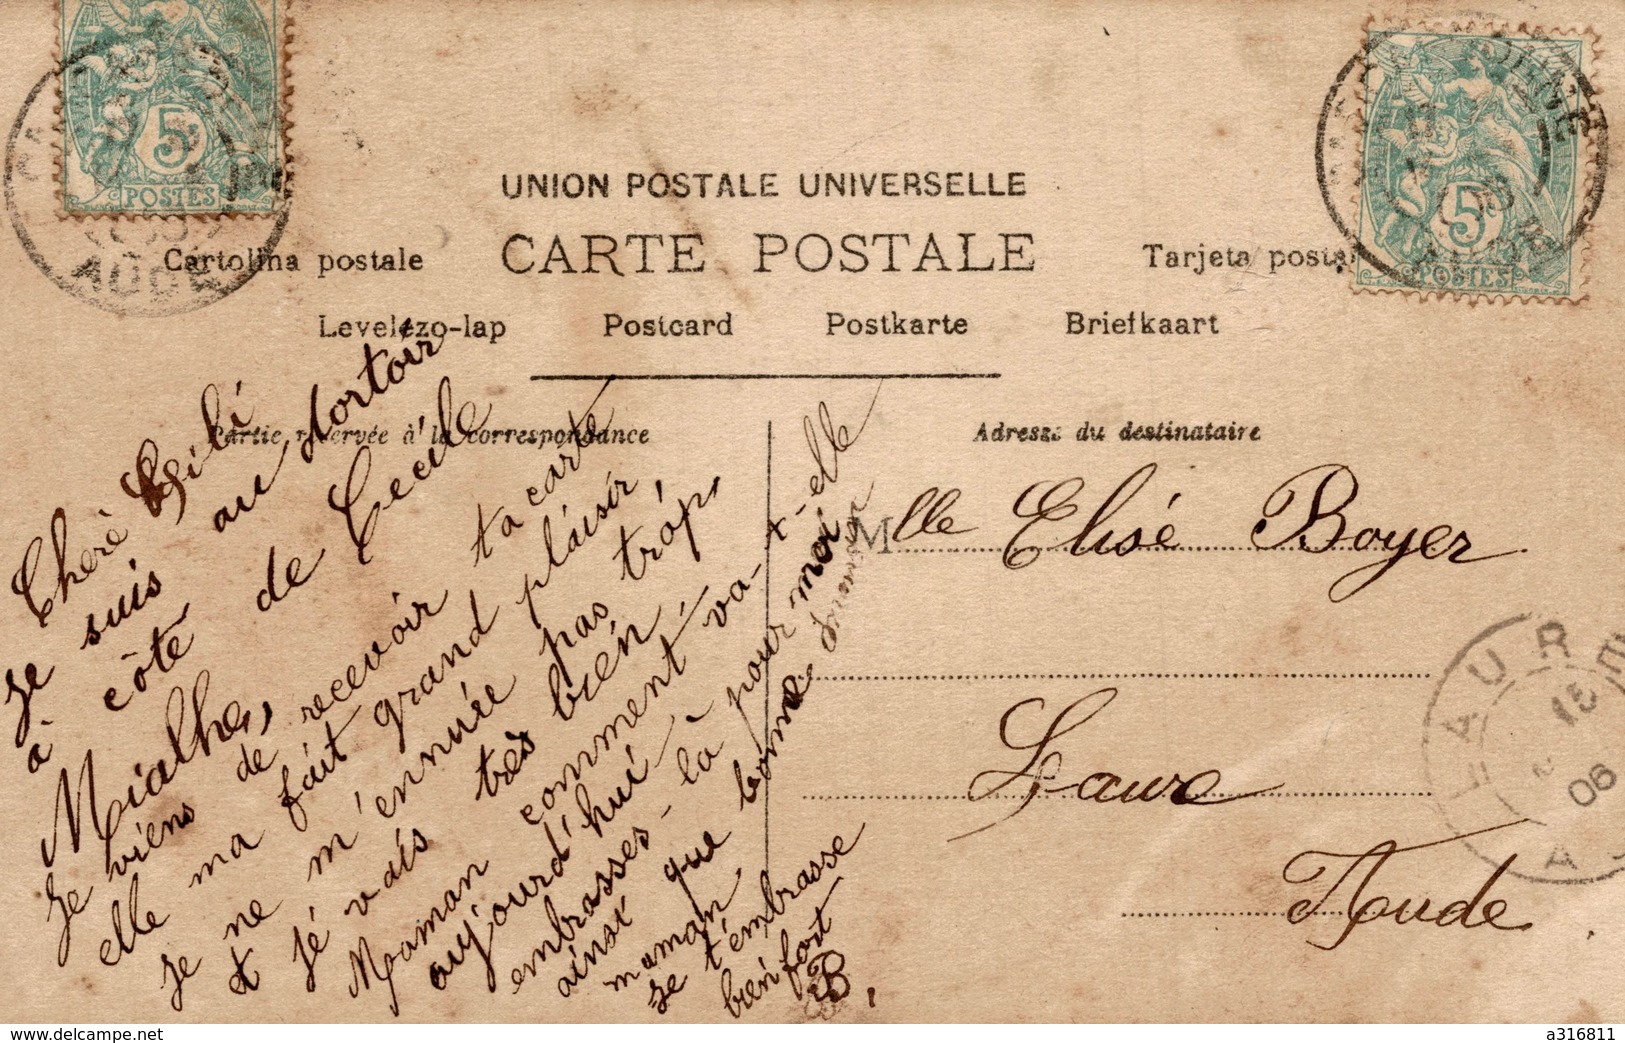 UNION POSTALE UNIVERSELLE
CARTE POSTALE
Cartolina postale
Tarjeta postal
Levelezo-lap
Postcard
Postkarte
Briefkaart
Partie réservée à la correspondance
Adresse du destinataire
5
POSTES
AUDE
5c
POSTES
Cherè
je suis au dortoir
à côte de Cecile
Mialhe,
je viens de recevoir ta carte
elle ma fait grand plaisir,
je ne m'ennuée pas trop,
& jé vais très bien,
Maman comment va-t-elle
aujourd'hui
embrasses-la pour moi
ainsi que bonne
maman
je t'embrasse
bien fort
B,
Mlle Elisé Boyer
Laure
Aude
LAURE
15
06
A
a316811